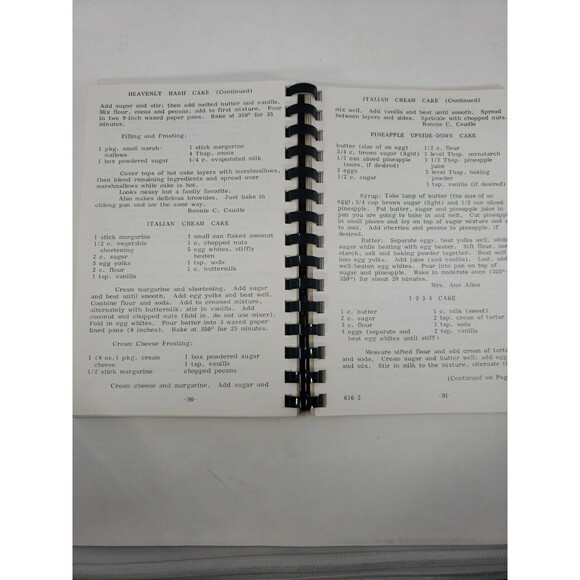 HEAVENLY HASH CAKE (Continued)
Add sugar and stir; then add melted butter and vanilla.
Mix flour, cocoa and pecans; add to first mixture. Pour
in two 9-inch waxed paper pans. Bake at 350° for 25
minutes.
Filling and Frosting:
1 pkg. small marsh-
mallows
1 box powdered sugar
1 stick margarine
4 Tbsp. cocoa
1/4 c. evaporated milk
Cover tops of hot cake layers with marshmallows,
then blend remaining ingredients and spread over
marshmallows while cake is hot.
Looks messy but a family favorite.
Also makes delicious brownies. Just bake in
oblong pan and ice the same way.
Bonnie C. Caudle
ITALIAN CREAM CAKE
1 stick margarine
1/2 c. vegetable
shortening
2 c. sugar
5 egg yolks
2 c. flour
1 tsp. vanilla
1 small can flaked coconut
1 c. chopped nuts
5 egg whites, stiffly
beaten
1 tsp. soda
1 c. buttermilk
Cream margarine and shortening. Add sugar
and beat until smooth. Add egg yolks and beat well.
Combine flour and soda. Add to creamed mixture,
alternately with buttermilk; stir in vanilla. Add
coconut and chopped nuts (fold in, do not use mixer).
Fold in egg whites. Pour batter into 3 waxed paper-
lined pans (8 inches). Bake at 350° for 25 minutes.
Cream Cheese Frosting:
1 (8 oz.) pkg. cream
cheese
1/2 stick margarine
1 box powdered sugar
1 tsp. vanilla
chopped pecans
Cream cheese and margarine. Add sugar and
-90-
ITALIAN CREAM CAKE (Continued)
mix well. Add vanilla and beat until smooth. Spread
between layers and sides. Sprinkle with chopped nuts.
Bonnie C. Caudle
PINEAPPLE UPSIDE-DOWN CAKE
butter (size of an egg)
3/4 c. brown sugar (light)
1/2 can sliced pineapple
(more, if desired)
2 eggs
1/2 c. sugar
1/2 c. flour
1 level Tbsp. cornstarch
1 1/2 Tbsp. pineapple
juice
1 level Tbsp. baking
powder
1 tsp. vanilla (if desired)
Syrup: Take lump of butter (the size of an
egg), 3/4 cup brown sugar (light) and 1/2 can sliced
pineapple. Put butter, sugar and pineapple juice in
pan you are going to bake in and melt. Cut pineapple
in small pieces and lay on top of sugar mixture and
to cool. Add cherries and pecans to pineapple, if
desired.
Batter: Separate eggs, beat yolks well, adding
sugar while beating with egg beater. Sift flour,
starch, salt and baking powder together. Beat well
into egg yolks. Add juice (and vanilla). Last, add
well-beaten egg whites. Pour into pan on top of
sugar and pineapple. Bake in moderate oven (325°
350°) for about 20 minutes.
Mrs. Ann Allen
1 2 3 4 CAKE
1 c. butter
2 c. sugar
3 c. flour
4 eggs (separate and
beat egg whites until stiff)
1 c. milk (sweet)
2 tsp. cream of tartar
1 tsp. soda
2 tsp. vanilla
Measure sifted flour and add cream of tartar
and soda. Cream sugar and butter well; add egg
and mix. Stir in milk to the mixture, alternate
(Continued on Pag
616-2
-91-